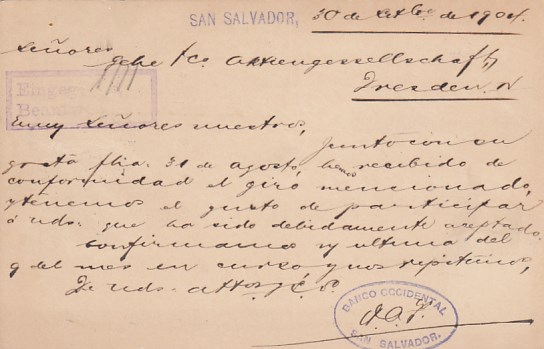 SAN SALVADOR, 30 de de 1904.
Señores
Gehe & Co. Aktiengessellschaft,
Dresden N
Eingeg
Bean
Muy Señores nuestros,
Junto con su
grata fha. 31 de agosto, hemos recibido de
conformidad el giro mencionado,
y tenemos el gusto de participar
á Uds. que ha sido debidamente aceptado.
Confirmamos ultima del
9 del mes en curso y nos repetimos,
De Uds. attos. S. S.
BANCO OCCIDENTAL
SAN SALVADOR.